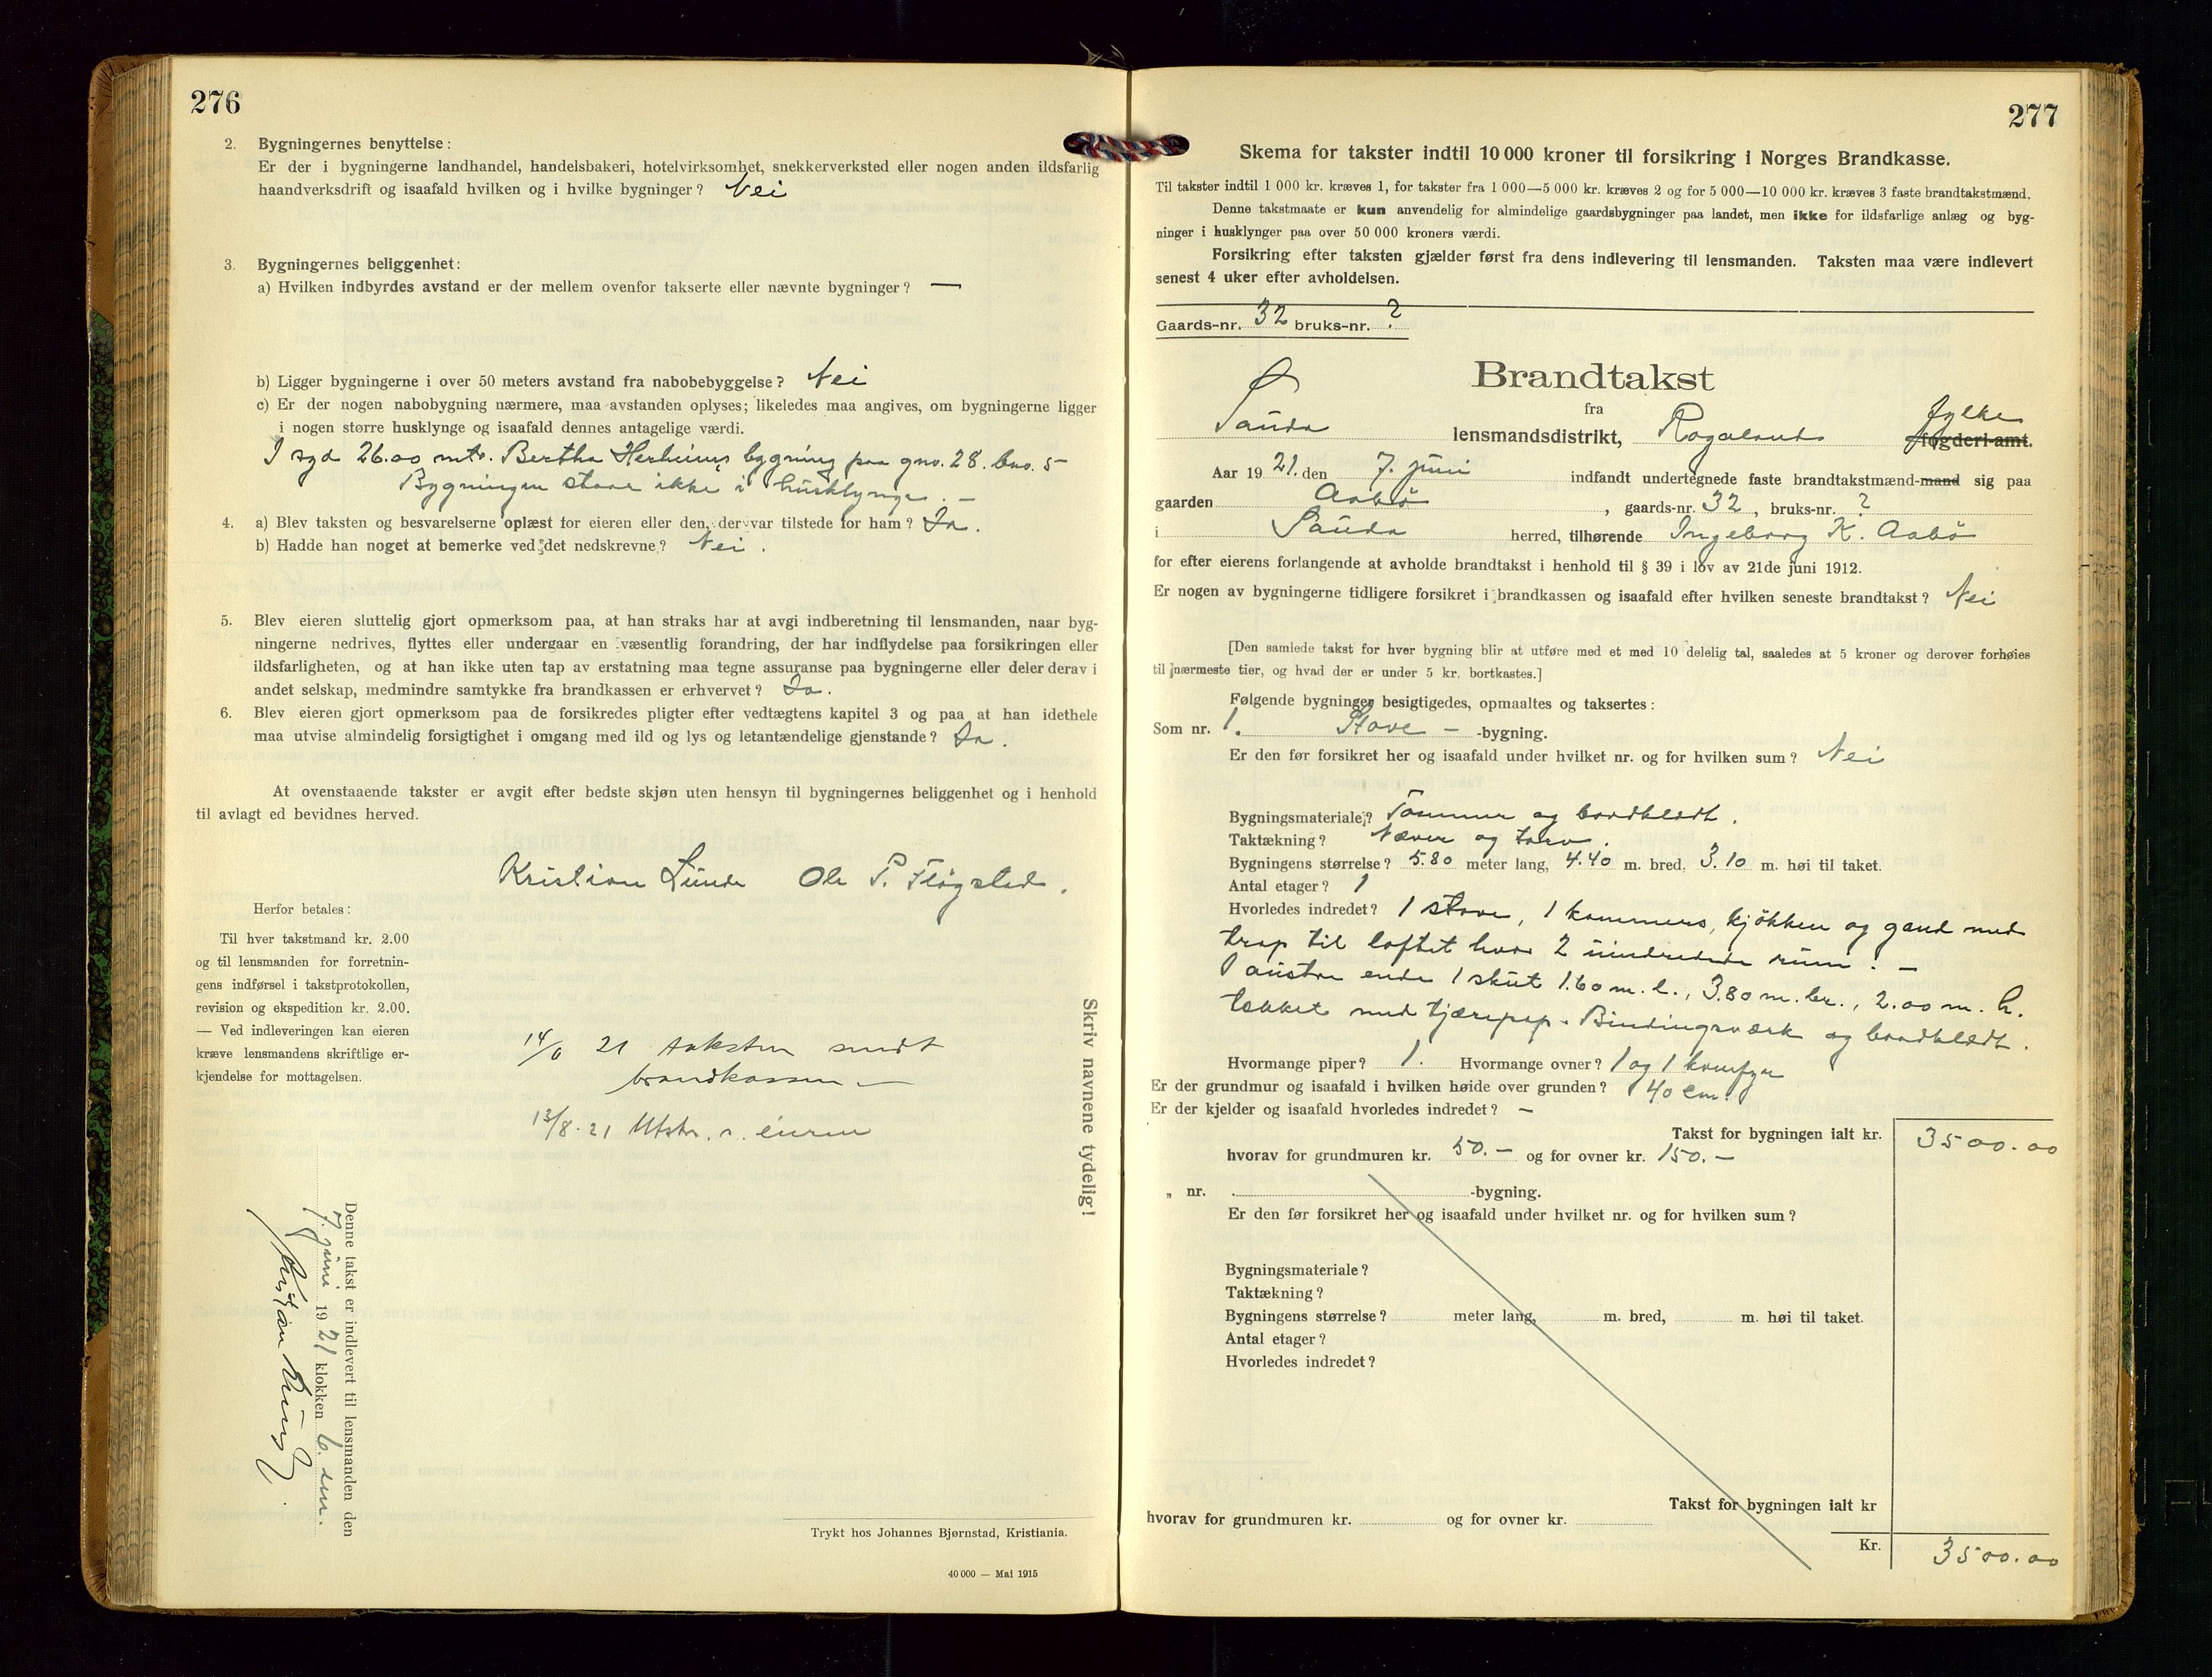 276
2. Bygningernes benyttelse:
Er der i bygningerne landhandel, handelsbakeri, hotelvirksomhet, snekkerverksted eller nogen anden ildsfarlig
haandverksdrift og isaafald hvilken og i hvilke bygninger? Nei
3. Bygningernes beliggenhet:
a) Hvilken indbyrdes avstand er der mellem ovenfor takserte eller nævnte bygninger? —
b) Ligger bygningerne i over 50 meters avstand fra nabobebyggelse? Nei
c) Er der nogen nabobygning nærmere, maa avstanden oplyses; likeledes maa angives, om bygningerne ligger
i nogen større husklynge og isaafald dennes antagelige værdi.
I syd 26.00 mtr. Bertha Herheims bygning paa gno. 28. bno. 5-
Bygningen staar ikke i husklynge. -
4. a) Blev taksten og besvarelserne oplæst for eieren eller den, der var tilstede for ham? Ja.
b) Hadde han noget at bemerke ved det nedskrevne? Nei.
5. Blev eieren sluttelig gjort opmerksom paa, at han straks har at avgi indberetning til lensmanden, naar byg-
ningerne nedrives, flyttes eller undergaar en væsentlig forandring, der har indflydelse paa forsikringen eller
ildsfarligheten, og at han ikke uten tap av erstatning maa tegne assuranse paa bygningerne eller deler derav i
andet selskap, medmindre samtykke fra brandkassen er erhvervet? Ja.
6. Blev eieren gjort opmerksom paa de forsikredes pligter efter vedtægtens kapitel 3 og paa at han idethele
maa utvise almindelig forsigtighet i omgang med ild og lys og letantændelige gjenstande? Ja.
At ovenstaaende takster er avgit efter bedste skjøn uten hensyn til bygningernes beliggenhet og i henhold
til avlagt ed bevidnes herved.
Kristian Lunde Ole P. Fløgstad.
Herfor betales:
Til hver takstmand kr. 2.00
og til lensmanden for forretnin-
gens indførsel i takstprotokollen,
revision og ekspedition kr. 2.00.
— Ved indleveringen kan eieren
kræve lensmandens skriftlige er-
kjendelse for mottagelsen.
14/6 21 taksten sendt
brandkassen —
13/8. 21 Utstr. s. eieren
Skriv navnene tydelig!
Denne takst er indlevert til lensmanden den
7. juni 1921 klokken 6. em.
Trykt hos Johannes Bjørnstad, Kristiania.
40 000 — Mai 1915
277
Skema for takster indtil 10 000 kroner til forsikring i Norges Brandkasse.
Til takster indtil 1 000 kr. kræves 1, for takster fra 1 000—5 000 kr. kræves 2 og for 5 000—10 000 kr. kræves 3 faste brandtakstmænd.
Denne takstmaate er kun anvendelig for almindelige gaardsbygninger paa landet, men ikke for ildsfarlige anlæg og byg-
ninger i husklynger paa over 50 000 kroners værdi.
Forsikring efter taksten gjælder først fra dens indlevering til lensmanden. Taksten maa være indlevert
senest 4 uker efter avholdelsen.
Gaards-nr. 32 bruks-nr. ?
Brandtakst
fra
Sauda lensmandsdistrikt, Rogalands fylke fogderi-amt.
Aar 1921. den 7. juni indfandt undertegnede faste brandtakstmænd-mand sig paa
gaarden Aabø, gaards-nr. 32, bruks-nr. ?
i Sauda herred, tilhørende Ingeborg K. Aabø
for efter eierens forlangende at avholde brandtakst i henhold til § 39 i lov av 21de juni 1912.
Er nogen av bygningerne tidligere forsikret i brandkassen og isaafald efter hvilken seneste brandtakst? Nei
[Den samlede takst for hver bygning blir at utføre med et med 10 delelig tal, saaledes at 5 kroner og derover forhøies
til nærmeste tier, og hvad der er under 5 kr. bortkastes.]
Følgende bygninger besigtigedes, opmaaltes og taksertes:
Som nr. 1. Stove - -bygning.
Er den før forsikret her og isaafald under hvilket nr. og for hvilken sum? Nei
Bygningsmateriale? Tømmer og bordklædt.
Taktækning? Næver og torv.
Bygningens størrelse? 5.80 meter lang, 4.40 m. bred, 3.10 m. høi til taket.
Antal etager? 1
Hvorledes indredet? 1 stove, 1 kammers, kjøkken og gand med
trap til loftet hvor 2 uindredede rum. -
I austre ende 1 skut 1.60 m. l., 3.80 m. br., 2.00 m. h.
tækket med tjærepap. Bindingsværk og bordklædt.
Hvormange piper? 1. Hvormange ovner? 1 og 1 komfyr
Er der grundmur og isaafald i hvilken høide over grunden? 40 cm.
Er der kjelder og isaafald hvorledes indredet? -
Takst for bygningen ialt kr. 3500.00
hvorav for grundmuren kr. 50.- og for ovner kr. 150.-
„ nr. -bygning.
Er den før forsikret her og isaafald under hvilket nr. og for hvilken sum?
Bygningsmateriale?
Taktækning?
Bygningens størrelse? meter lang, m. bred, m. høi til taket.
Antal etager?
Hvorledes indredet?
Takst for bygningen ialt kr
hvorav for grundmuren kr. og for ovner kr.
Kr. 3500.00